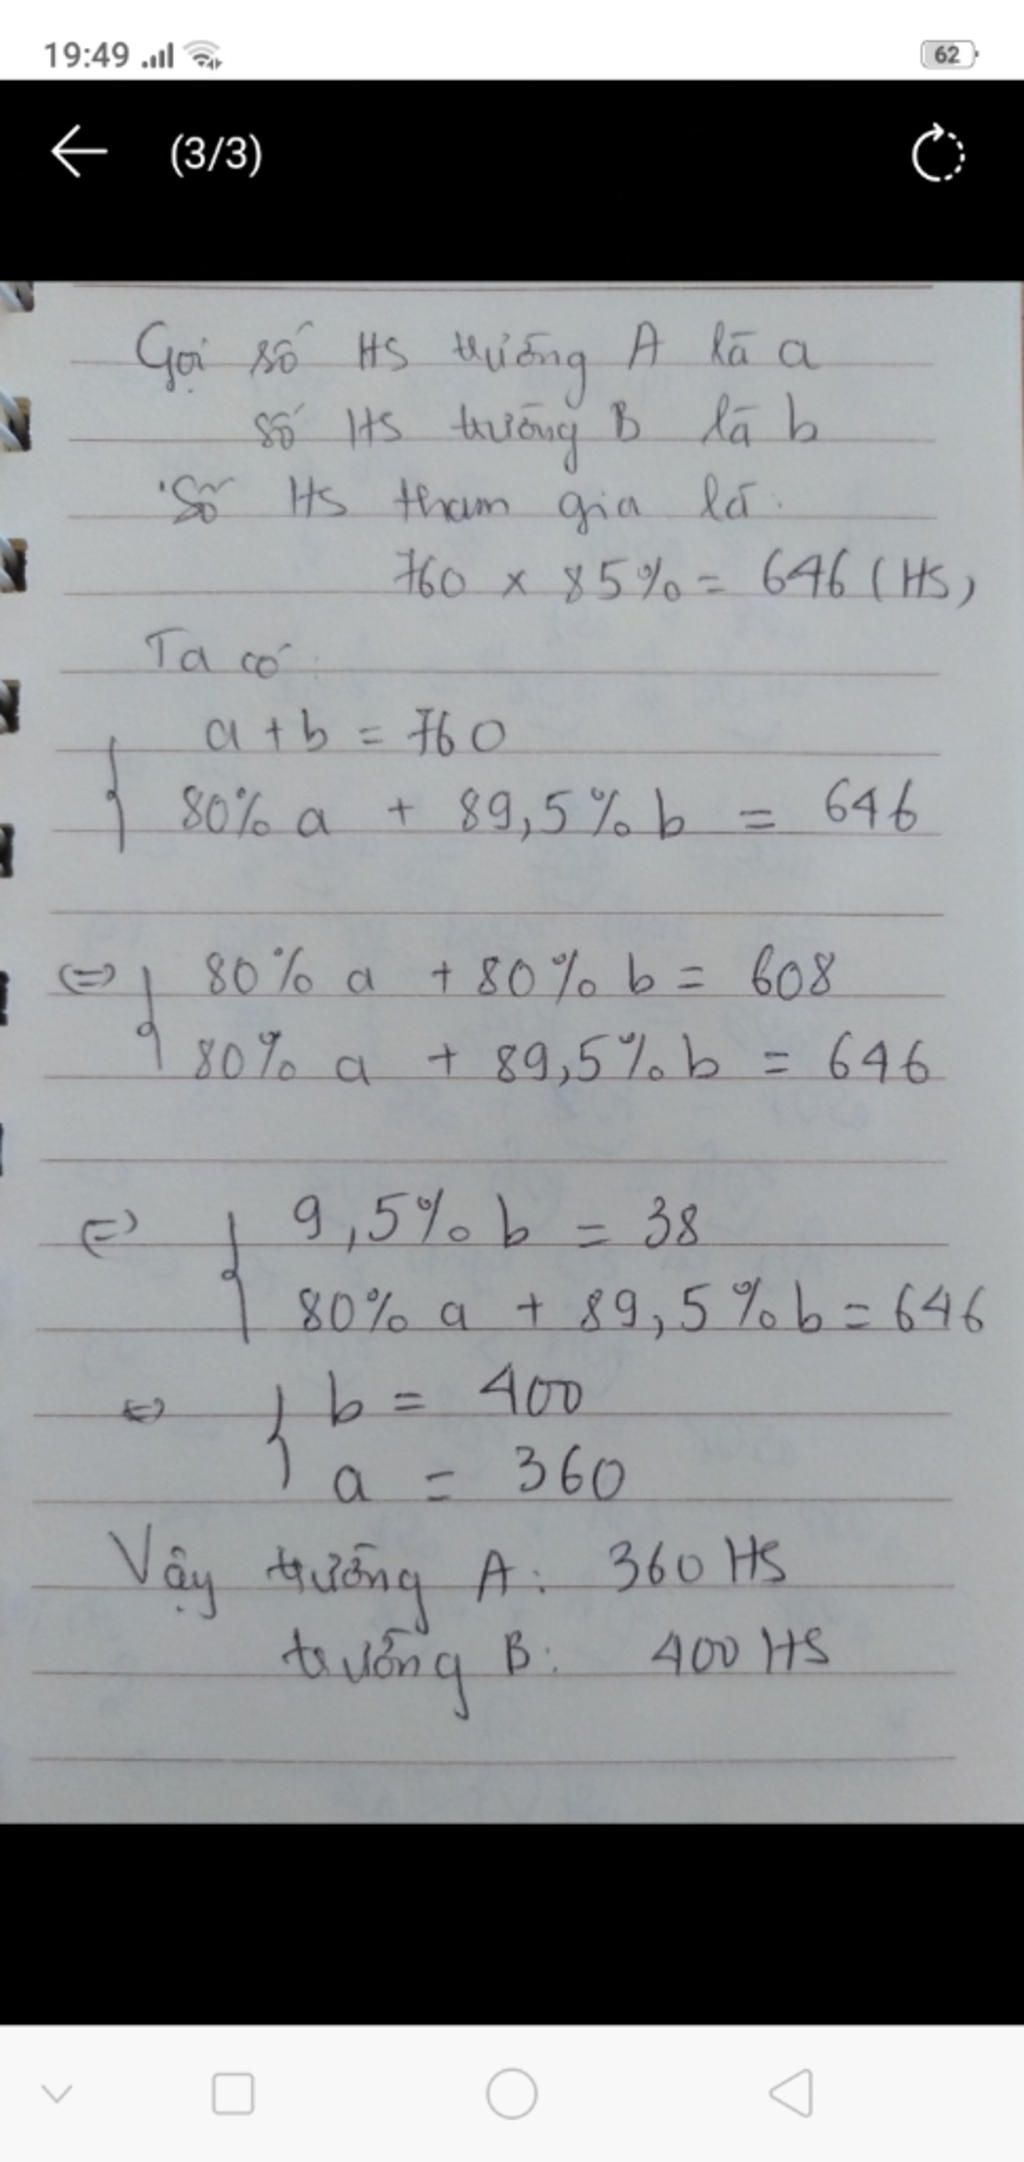 19:49
62
(3/3)
Gọi số HS trường A là a
số HS trường B là b
Số HS tham gia là.
760 x 85% = 646 (HS)
Ta có
a + b = 760
80% a + 89,5% b = 646
<=> 80% a + 80% b = 608
80% a + 89,5% b = 646
<=> 9,5% b = 38
80% a + 89,5% b = 646
<=> b = 400
a = 360
Vậy trường A: 360 HS
trường B: 400 HS